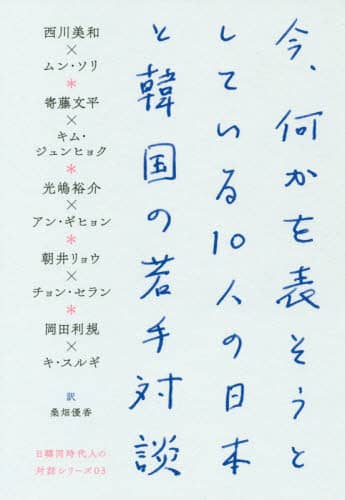 今、何かを表そうと
している10人の日本
と韓国の若手対談
西川美和
×
ムン・ソリ
*
寄藤文平
×
キム・
ジュンヒョク
*
光嶋裕介
×
アン・ギヒョン
*
朝井リョウ
×
チョン・セラン
*
岡田利規
×
キ・スルギ
訳
桑畑優香
日韓同時代人の
対話シリーズ03